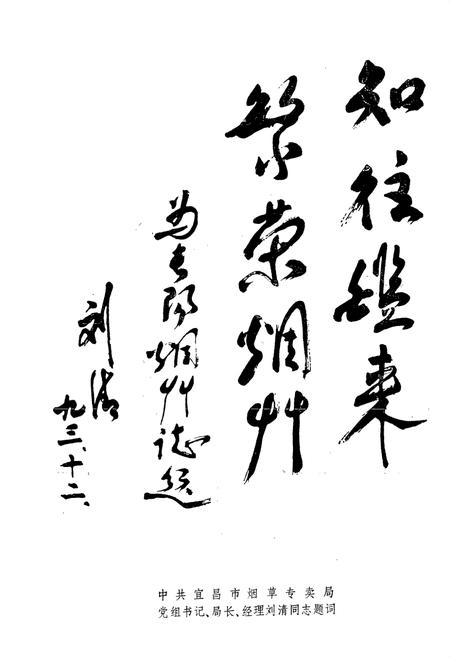 知往鑑来
繁荣烟艸
为长阳烟艸誌题
刘清
九三、十二、
中共宜昌市烟草专卖局
党组书记、局长、经理刘清同志题词